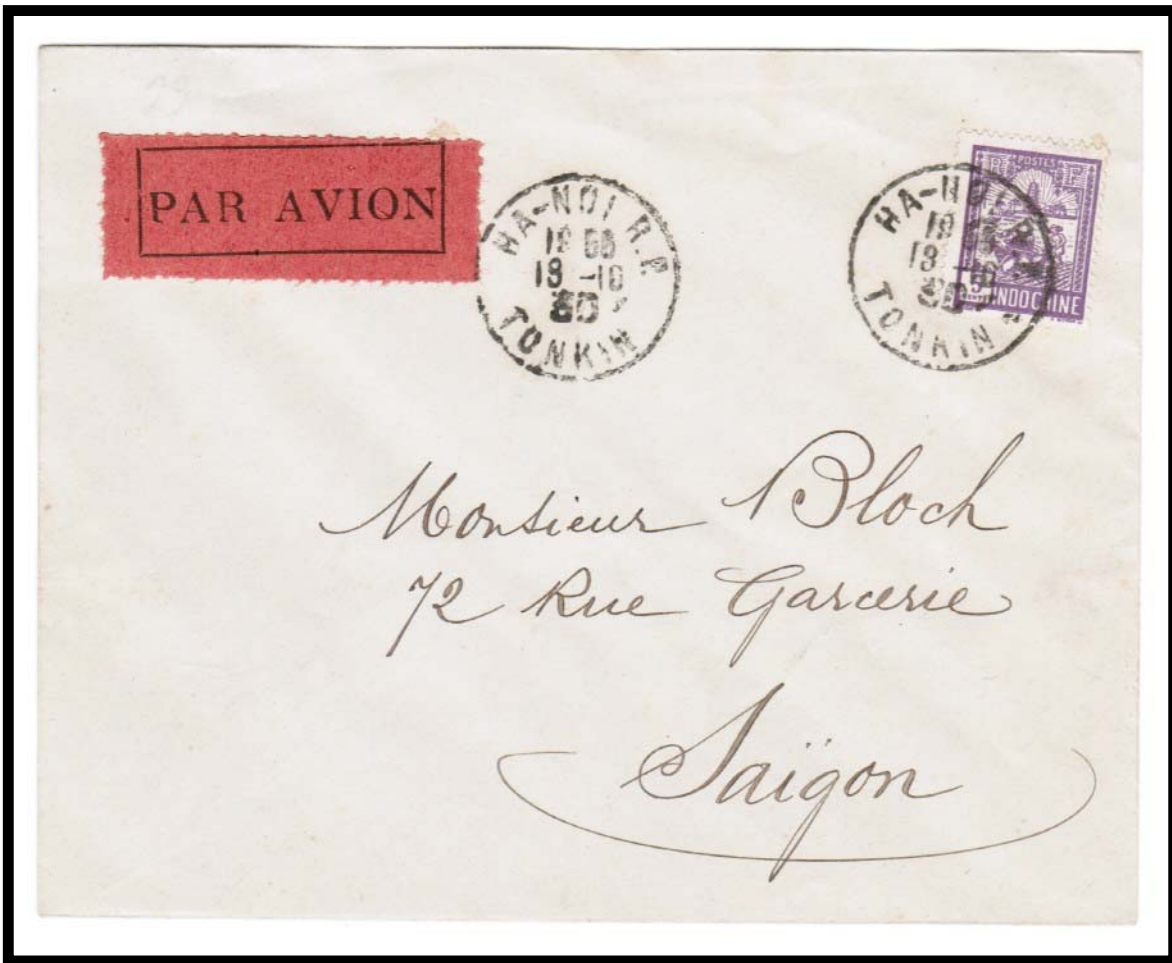 PAR AVION
HA-NOI R.P.
18
13 -10
30
TONKIN
HA-NOI R.P.
18
13 -10
30
TONKIN
POSTES
RF
INDOCHINE
Monsieur Bloch
72 Rue Garcerie
Saïgon